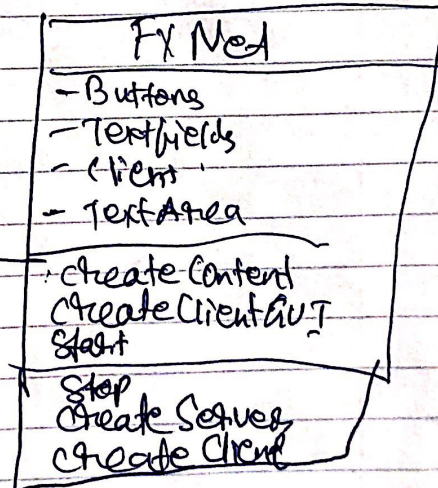 FX Net
- Buttons
- Textfields
- Client
- TextArea
createContent
createClientGUI
Start
Stop
Create Server
Create Client